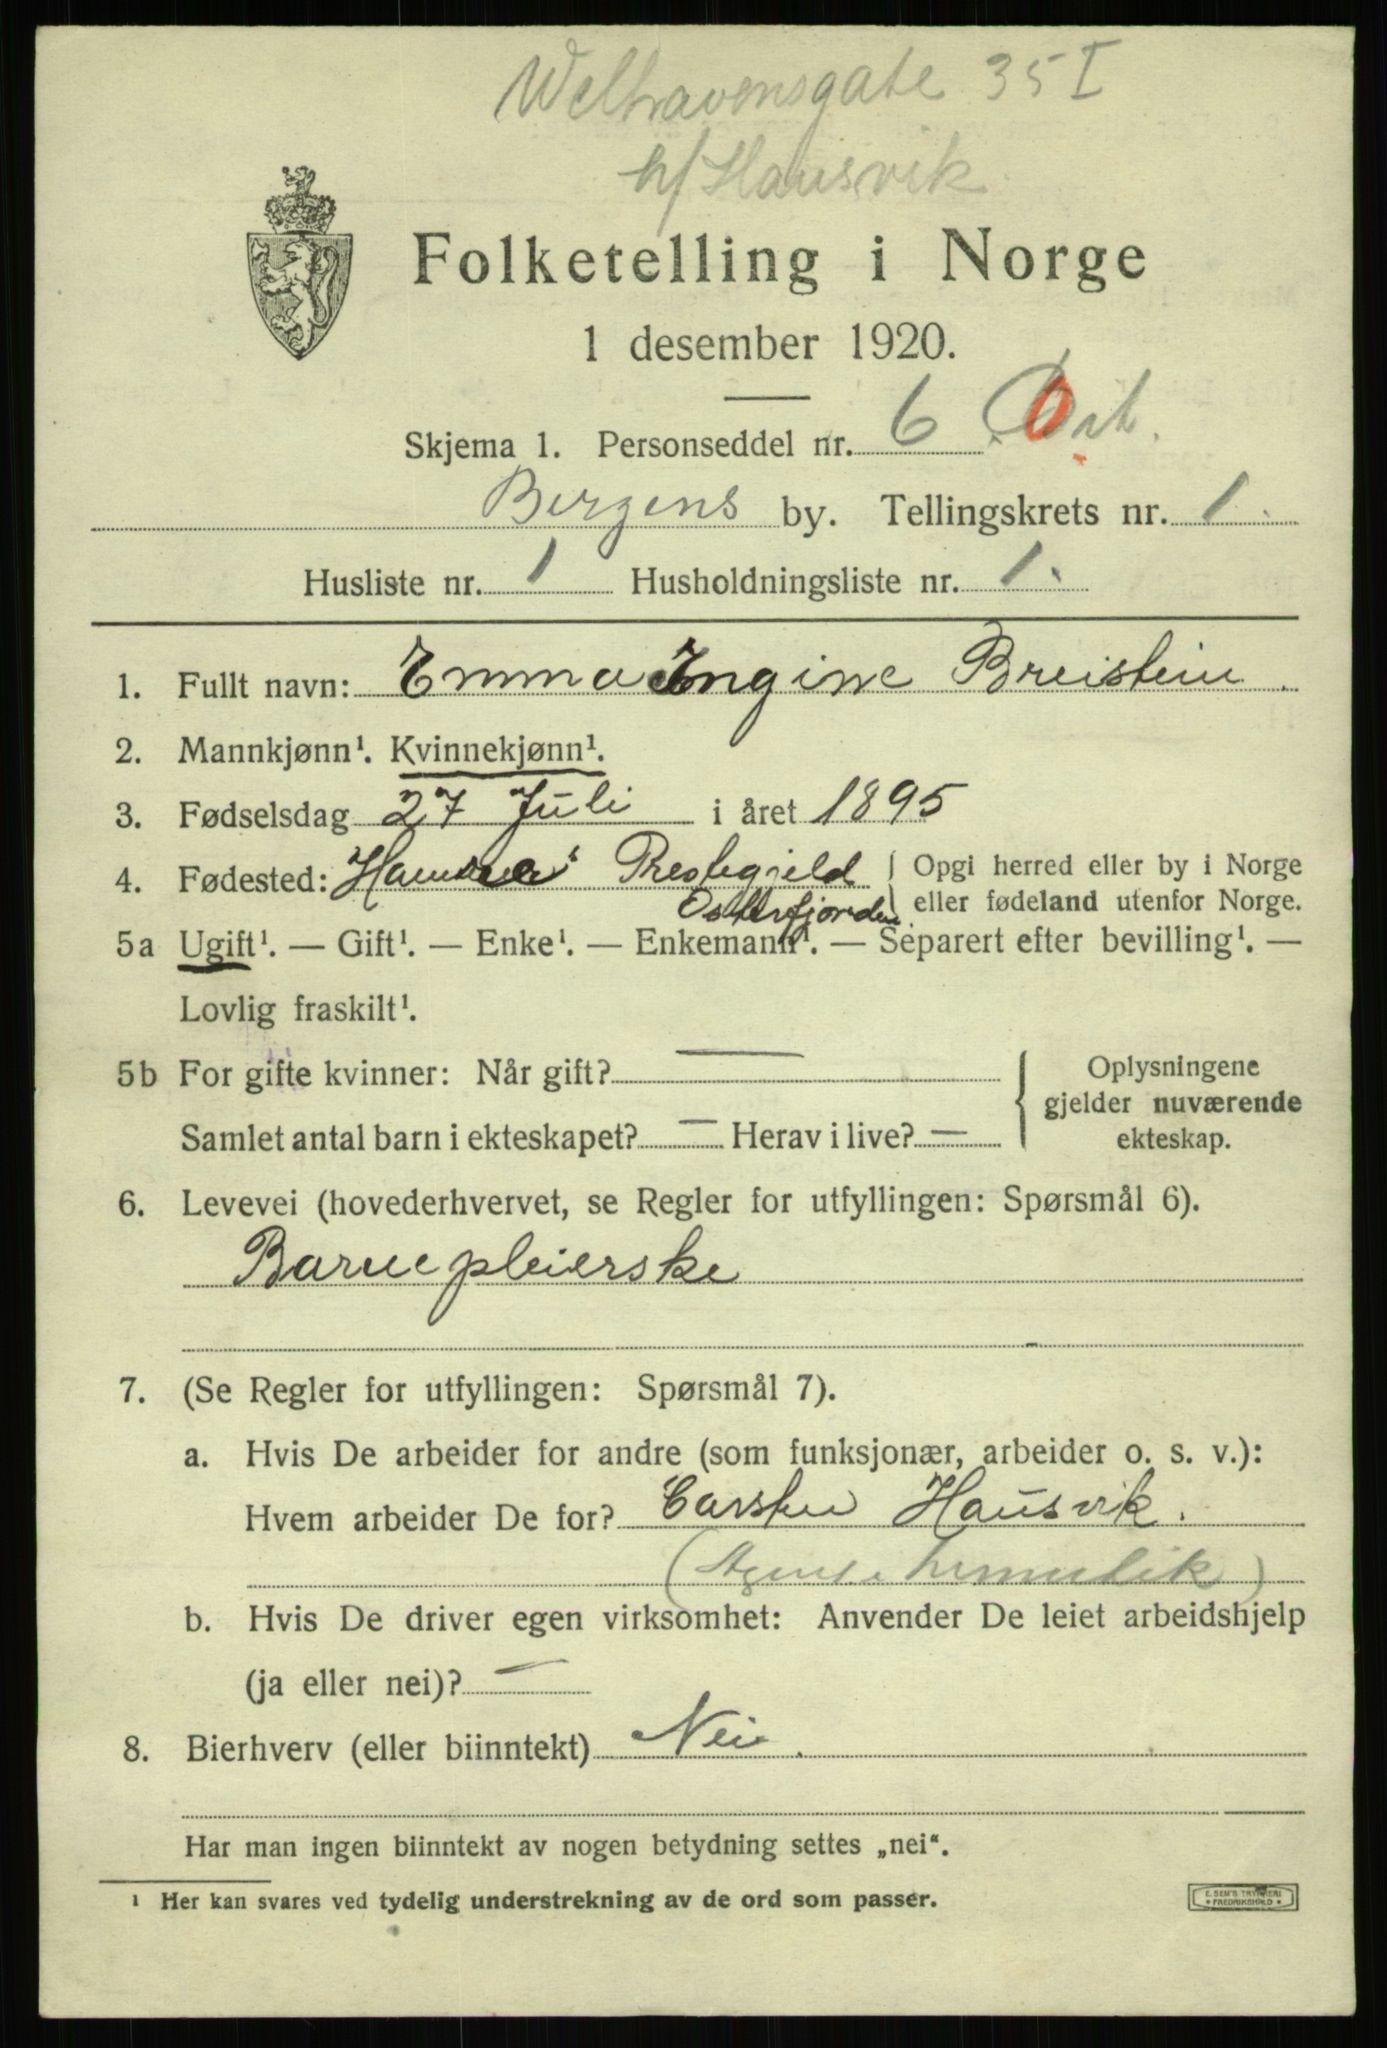 Welhavensgate 35 I
h/ Hausvik
Folketelling i Norge
1 desember 1920.
Skjema 1. Personseddel nr. 6
Bergens by. Tellingskrets nr. 1.
Husliste nr. 1 Husholdningsliste nr. 1.
1. Fullt navn: Emma Ingine Breistein
2. Mannkjønn¹. Kvinnekjønn¹.
3. Fødselsdag 27 Juli i året 1895
4. Fødested: Prestegield Opgi herred eller by i Norge
Osterfjorden eller fødeland utenfor Norge.
5a Ugift¹. — Gift¹. — Enke¹. — Enkemann¹. — Separert efter bevilling¹. —
Lovlig fraskilt¹.
5b For gifte kvinner: Når gift? — Oplysningene
gjelder nuværende
Samlet antal barn i ekteskapet? — Herav i live? — ekteskap.
6. Levevei (hovederhvervet, se Regler for utfyllingen: Spørsmål 6).
Barnepleierske
7. (Se Regler for utfyllingen: Spørsmål 7).
a. Hvis De arbeider for andre (som funksjonær, arbeider o. s. v.):
Hvem arbeider De for? Carsten Hausvik.
b. Hvis De driver egen virksomhet: Anvender De leiet arbeidshjelp
(ja eller nei)? —
8. Bierhverv (eller biinntekt) Nei.
Har man ingen biinntekt av nogen betydning settes „nei“.
¹ Her kan svares ved tydelig understrekning av de ord som passer.
E. SEM'S TRYKKERI
FREDRIKSHALD